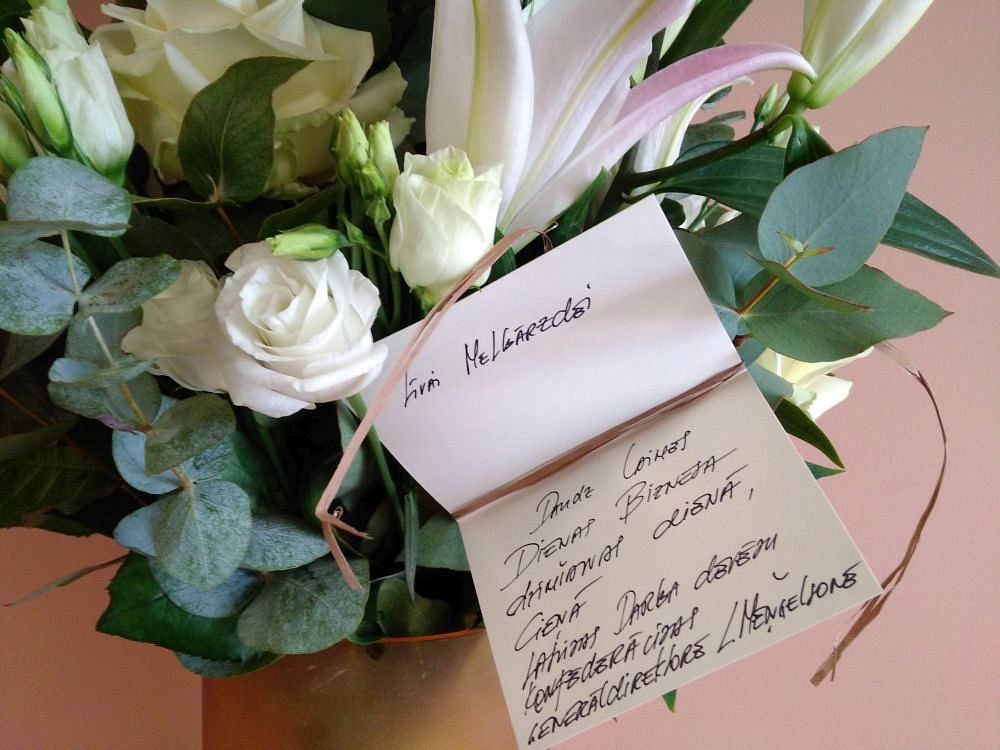 Līvai Melgārzdei
Daudz Laimes
Dienas Biznesa
dzimšanas dienā,
Cieņā
Latvijas Darba devēju
Konfederācijas
Ģenerāldirektore L Meņģelsone